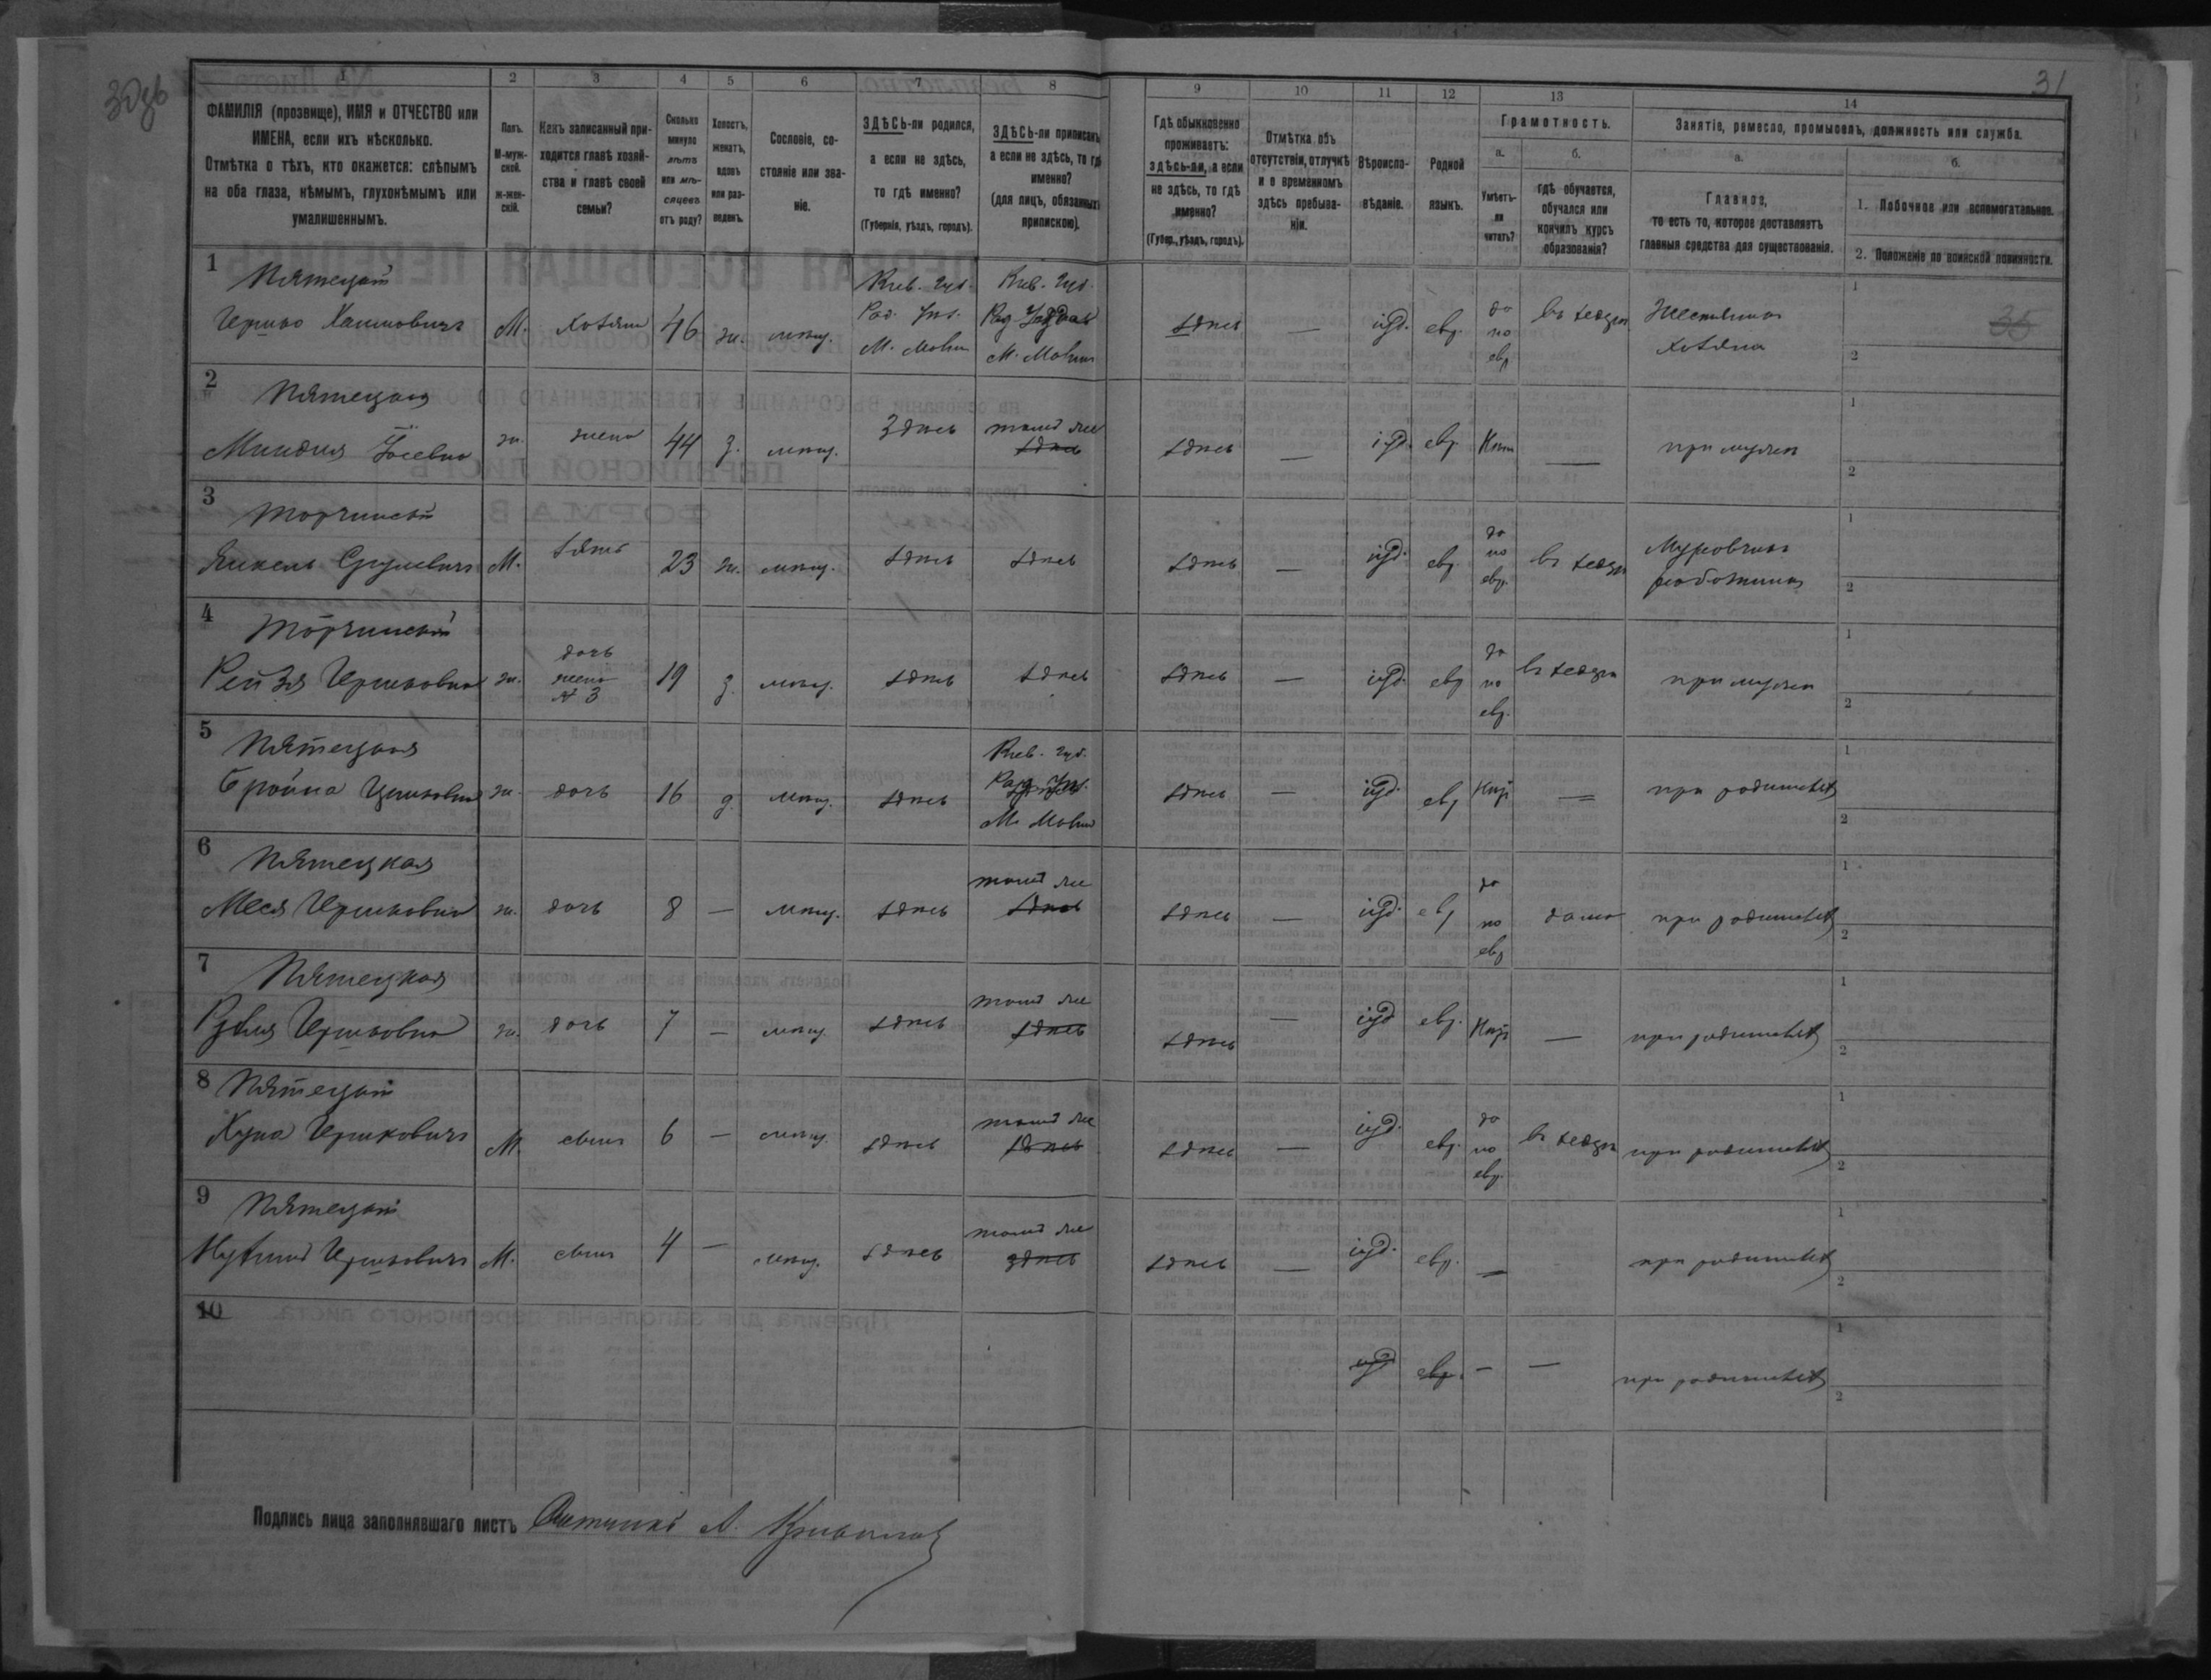 31
1 2 3 4 5 6 7 8 9 10 11 12 13 14
ФАМИЛІЯ (прозвище), ИМЯ и ОТЧЕСТВО или ИМЕНА, если ихъ нѣсколько.
Отмѣтка о тѣхъ, кто окажется: слѣпымъ на оба глаза, нѣмымъ, глухонѣмымъ или умалишеннымъ.
Полъ. М-мужской. ж-женскій.
Какъ записанный приходится главѣ хозяйства и главѣ своей семьи?
Сколько минуло лѣтъ или мѣсяцевъ отъ роду?
Холостъ, женатъ, вдовъ или разведенъ.
Сословіе, состояніе или званіе.
ЗДѢСЬ-ли родился, а если не здѣсь, то гдѣ именно?
(Губернія, уѣздъ, городъ).
ЗДѢСЬ-ли приписанъ, а если не здѣсь, то гдѣ именно?
(для лицъ, обязанныхъ припискою).
Гдѣ обыкновенно проживаетъ: здѣсь-ли, а если не здѣсь, то гдѣ именно?
(Губер., уѣздъ, городъ).
Отмѣтка объ отсутствіи, отлучкѣ и о временномъ здѣсь пребываніи.
Вѣроисповѣданіе.
Родной языкъ.
Грамотность.
а. Умѣетъ-ли читать?
б. гдѣ обучается, обучался или кончилъ курсъ образованія?
Занятіе, ремесло, промыселъ, должность или служба.
а. Главное,
то есть то, которое доставляетъ главныя средства для существованія.
б.
1. Побочное или вспомогательное.
2. Положеніе по воинской повинности.
1 Пятецкій
Гершко Хаимовичъ М. хозяинъ 46 ж. мѣщ. Кіев. губ. М. здѣсь — іуд. евр. да по евр. въ хедерѣ хозяинъ 35
2 Пятецкая
ж. жена 44 з. мѣщ. Здѣсь тамъ же здѣсь здѣсь — іуд. евр. — при мужѣ
3 Торчинскій
Янкель М. зять 23 ж. мѣщ. здѣсь здѣсь здѣсь — іуд. евр. да по евр. въ хедерѣ
4 Торчинская
Рейзя Гершковна ж. дочь жена № 3 19 з. мѣщ. здѣсь здѣсь здѣсь — іуд. евр. да по евр. въ хедерѣ при мужѣ
5 Пятецкая
Бройна Гершковна ж. дочь 16 д. мѣщ. здѣсь Кіев. губ. М. здѣсь — іуд. евр. — при родителяхъ
6 Пятецкая
Меся Гершковна ж. дочь 8 — мѣщ. здѣсь тамъ же здѣсь здѣсь — іуд. евр. да по евр. дома при родителяхъ
7 Пятецкая
Гершковна ж. дочь 7 — мѣщ. здѣсь тамъ же здѣсь здѣсь — іуд. евр. — при родителяхъ
8 Пятецкій
Хуна Гершковичъ М. сынъ 6 — мѣщ. здѣсь тамъ же здѣсь здѣсь — іуд. евр. да по евр. въ хедерѣ при родителяхъ
9 Пятецкій
Гершковичъ М. сынъ 4 — мѣщ. здѣсь тамъ же здѣсь здѣсь — іуд. евр. — при родителяхъ
10 іуд. евр. — — при родителяхъ
Подпись лица заполнявшаго листъ